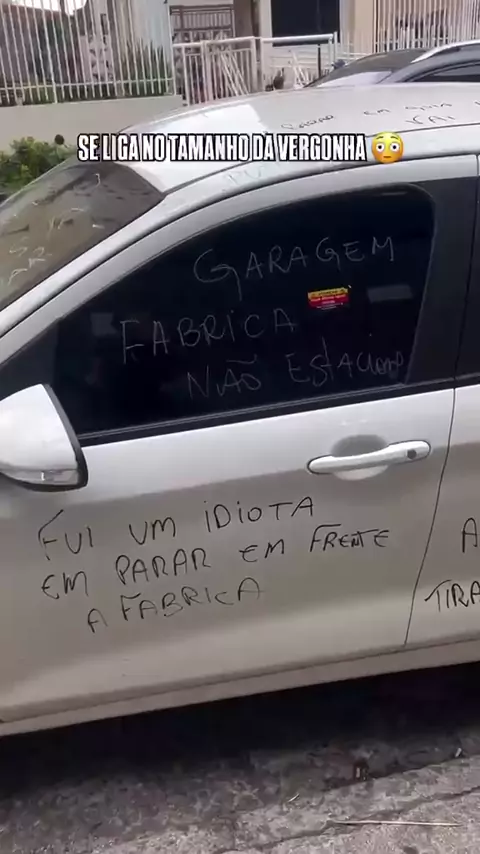 PARAR EM GUIA
VAI
SE LIGA NO TAMANHO DA VERGONHA 😳
GARAGEM
FABRICA
NÃO EStACIONE
FUI UM iDiOTA
EM PARAR EM FRENTE
A FABRICA
A
TIRA